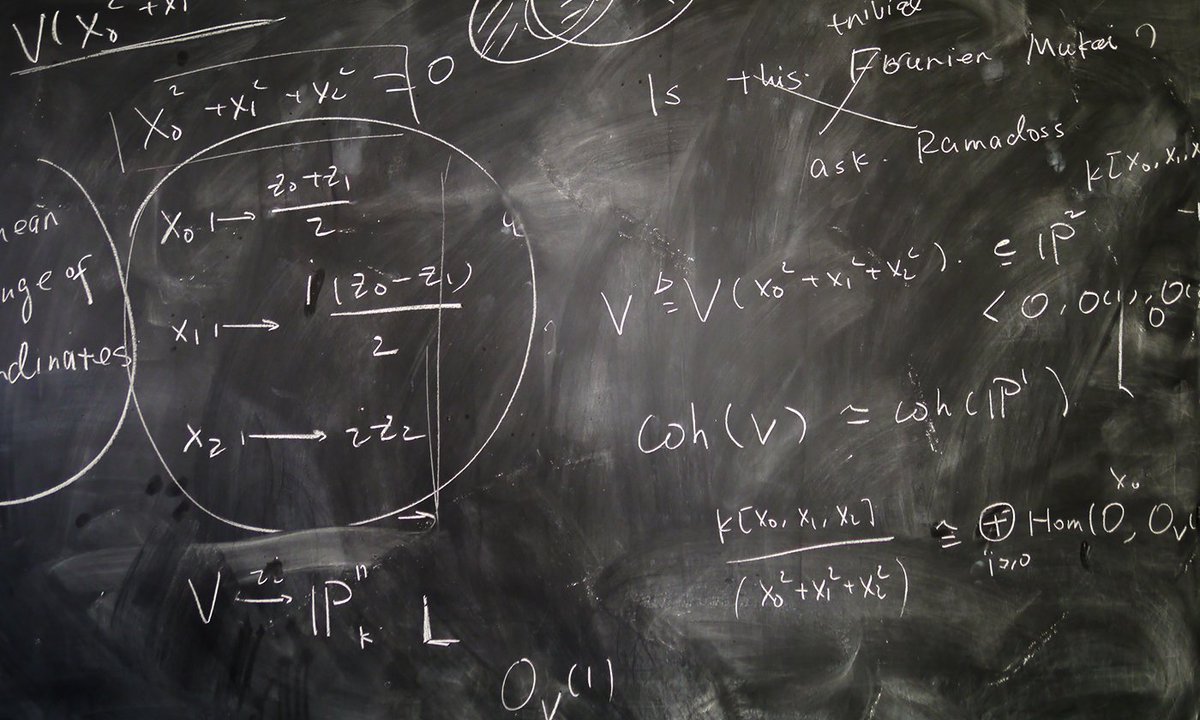 V(x₀² + x₁
x₀² + x₁² + x₂² = 0
nean
nge of
rdinates
x₀ ↦ (z₀ + z₁)/2
x₁ ↦ i(z₀ − z₁)/2
x₂ ↦ iz₂
V →^{zᵢ} ℙⁿₖ L
O_V(1)
trivial
Is this Fourier Mukai?
ask. Ramadoss
k[x₀, x₁, x
V ≜ V(x₀² + x₁² + x₂²). ⊆ ℙ²
< O, O(1), O(
0
Coh(V) ≅ coh(ℙ¹)
x₀
k[x₀, x₁, x₂]/(x₀² + x₁² + x₂²) ≅ ⊕_{i≥0} Hom(O, O_V(